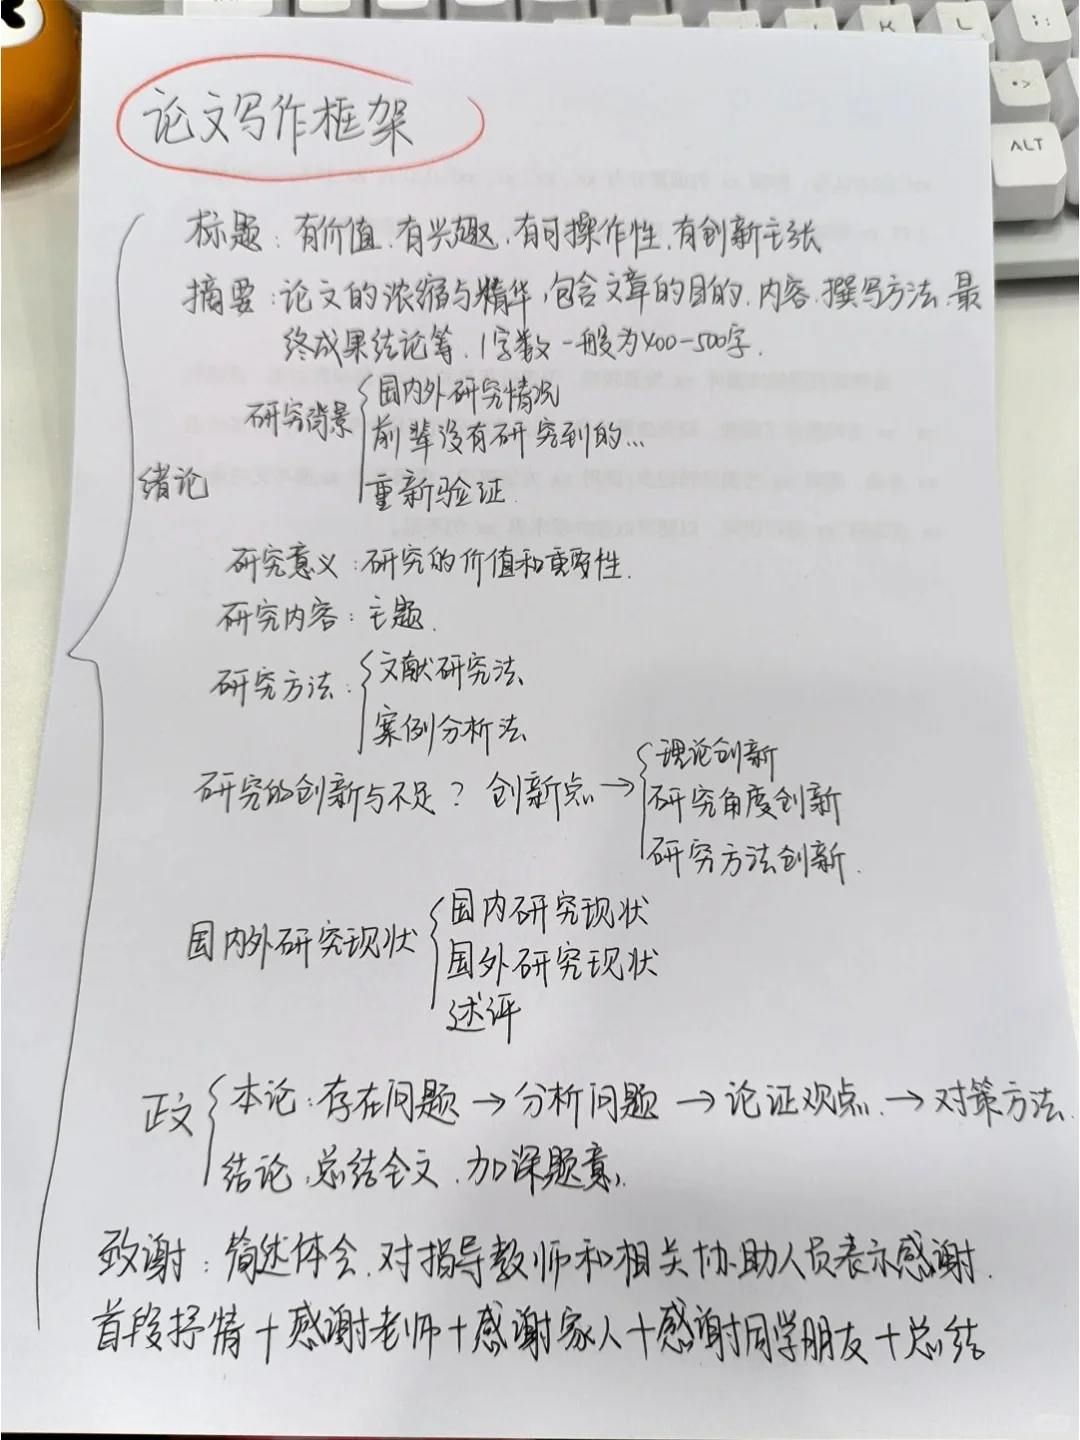 论文写作框架
标题：有价值、有兴趣、有可操作性、有创新主张
摘要：论文的浓缩与精华，包含文章的目的、内容、撰写方法、最
终成果结论等，字数一般为400-500字.
绪论
研究背景
国内外研究情况
前辈没有研究到的...
重新验证.
研究意义：研究的价值和重要性.
研究内容：主题.
研究方法：
文献研究法
案例分析法
研究的创新与不足？创新点→
理论创新
研究角度创新
研究方法创新.
国内外研究现状
国内研究现状
国外研究现状
述评
正文
本论：存在问题→分析问题→论证观点.→对策方法.
结论，总结全文，加深题意.
致谢：简述体会.对指导教师和相关协助人员表示感谢.
首段抒情+感谢老师+感谢家人+感谢同学朋友+总结
K
L
ALT